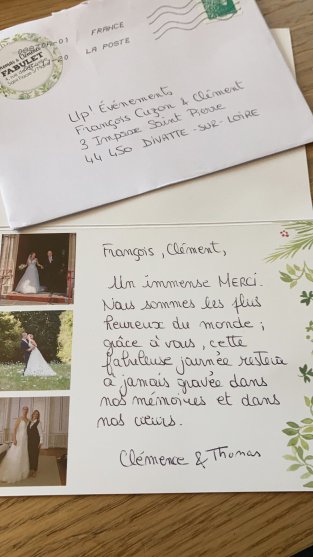 FABULET
FRANCE
LA POSTE
Up' Évènements
François Cuzon & Clément
3 Impasse Saint Pierre
44 450 DIVATTE-SUR-LOIRE
François, Clément,
Un immense MERCI.
Nous sommes les plus
heureux du monde ;
grâce à vous, cette
fabuleuse journée restera
à jamais gravée dans
nos mémoires et dans
nos cœurs.
Clémence & Thomas